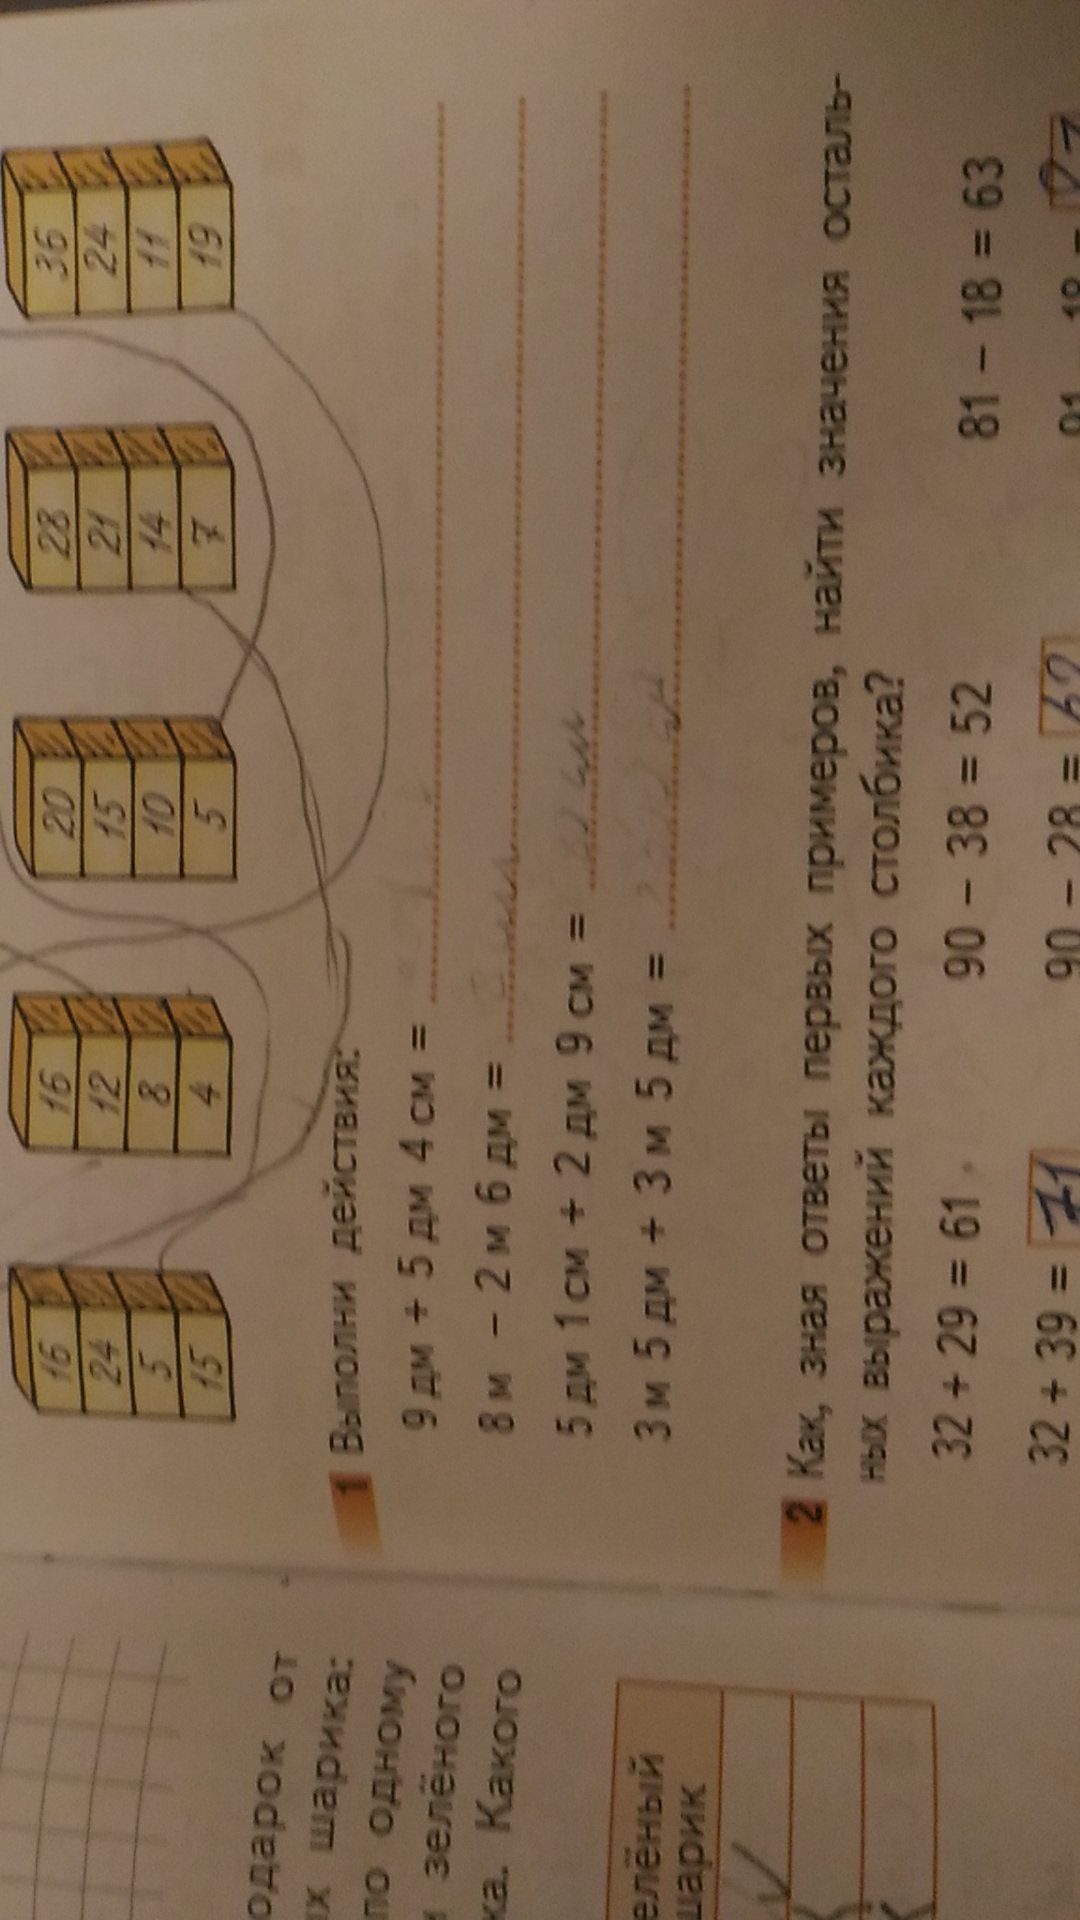 16 16 20 28 36
24 12 15 21 24
5 8 10 14 11
15 4 5 7 19
1 Выполни действия:
9 дм + 5 дм 4 см =
8 м – 2 м 6 дм =
5 дм 1 см + 2 дм 9 см =
3 м 5 дм + 3 м 5 дм =
2 Как, зная ответы первых примеров, найти значения осталь-
ных выражений каждого столбика?
32 + 29 = 61 90 – 38 = 52 81 – 18 = 63
32 + 39 = 71 90 – 28 = 62
одарок от
х шарика:
по одному
зелёного
ка. Какого
елёный
шарик